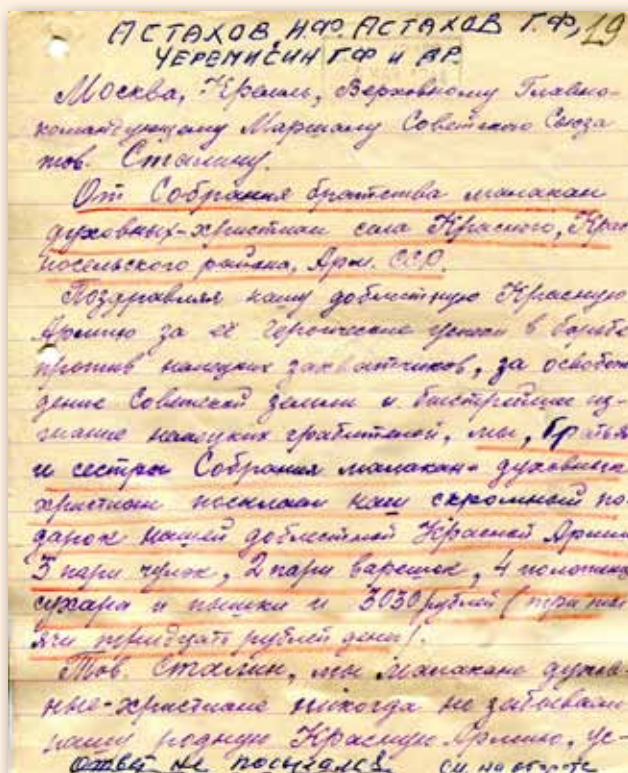 АСТАХОВ Н.Ф. АСТАХОВ Г.Ф, 19
ЧЕРЕМИСИН Г.Ф И ДР.
Москва, Кремль, Верховному Главно-
командующему Маршалу Советского Союза
тов. Сталину.
От Собрания братства малакан
духовных-христиан села Красного, Крас
посельского района, Арм. ССР.
Поздравляя нашу доблестную Красную
Армию за её героические успехи в борьбе
против немецких захватчиков, за освобож
дение Советской земли и быстрейшее из-
гнание немецких грабителей, мы, братья
и сестры Собрания малакан-духовных
христиан посылаем наш скромный по-
дарок нашей доблестной Красной Армии
3 пари чулок, 2 пари варешок, 4
сухара и пышки и 3030 рублей (три тыс
ячи тридцать рублей денег).
Тов. Сталин, мы малакане духов-
ные-христиане никогда не забываем
нашу родную Красную Армию, ус-
Ответ не посылался см. на обороте